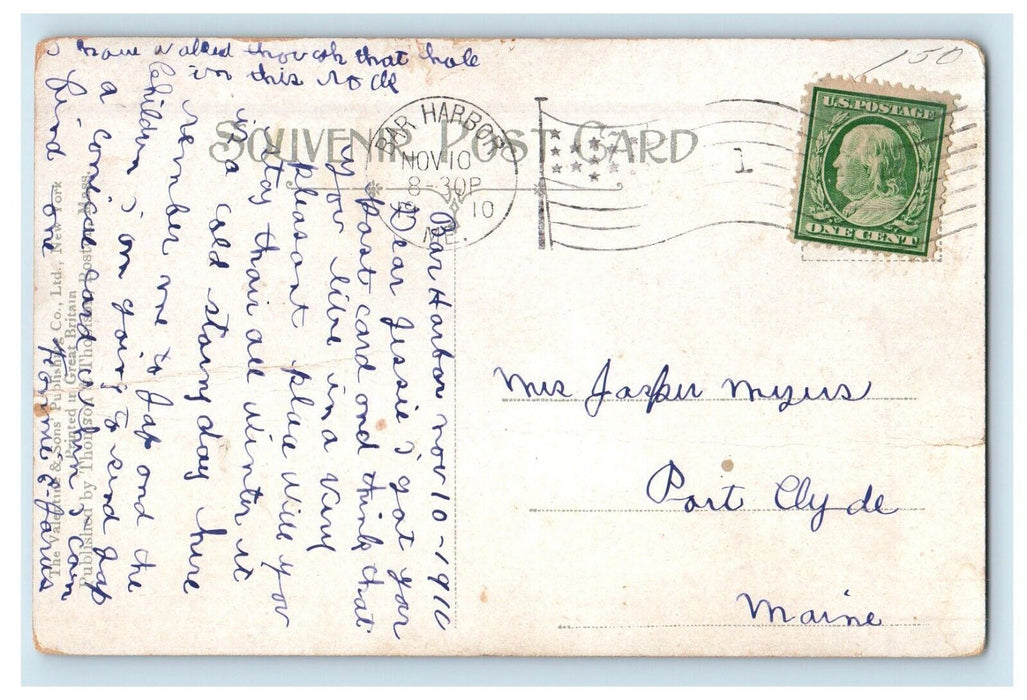 i have walked through that hole
in this rock
150
SOUVENIR POST CARD
BAR HARBOR
NOV 10
8-30P
10
ME.
1
U.S. POSTAGE
ONE CENT
Bar Harbor nov 10-1910
Dear Jessie i got your
post card and think that
you live in a very
pleasant place will you
stay thair all winter it
is a cold stormy day here
rember me to Jap and the
children i am going to send Jap
a comical card when i can
find one
Mrs Jasper Myers
Port Clyde
Maine
The Valentine & Sons' Publishing Co., Ltd., New York
Printed in Great Britain
Published by Thomson & Thomson, Boston, Mass.